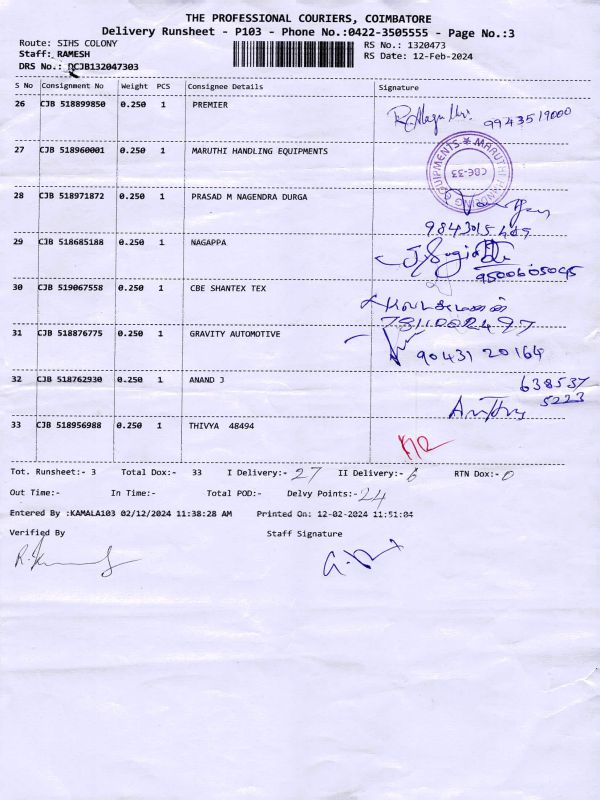 THE PROFESSIONAL COURIERS, COIMBATORE
Delivery Runsheet - P103 - Phone No.:0422-3505555 - Page No.:3
Route: SIHS COLONY
RS No.: 1320473
Staff: RAMESH
RS Date: 12-Feb-2024
DRS No.: DCJB132047303
S No Consignment No Weight PCS Consignee Details Signature
26 CJB 518899850 0.250 1 PREMIER
9943519000
27 CJB 518960001 0.250 1 MARUTHI HANDLING EQUIPMENTS
MARUTHI HANDLING EQUIPMENTS
CBE-33
28 CJB 518971872 0.250 1 PRASAD M NAGENDRA DURGA
29 CJB 518685188 0.250 1 NAGAPPA
9500605045
30 CJB 519067558 0.250 1 CBE SHANTEX TEX
31 CJB 518876775 0.250 1 GRAVITY AUTOMOTIVE
90431 20164
32 CJB 518762930 0.250 1 ANAND J
638537
5223
33 CJB 518956988 0.250 1 THIVYA 48494
Tot. Runsheet:- 3 Total Dox:- 33 I Delivery:- 27 II Delivery:- 6 RTN Dox:- 0
Out Time:- In Time:- Total POD:- Delvy Points:- 24
Entered By :KAMALA103 02/12/2024 11:38:28 AM Printed On: 12-02-2024 11:51:04
Verified By Staff Signature